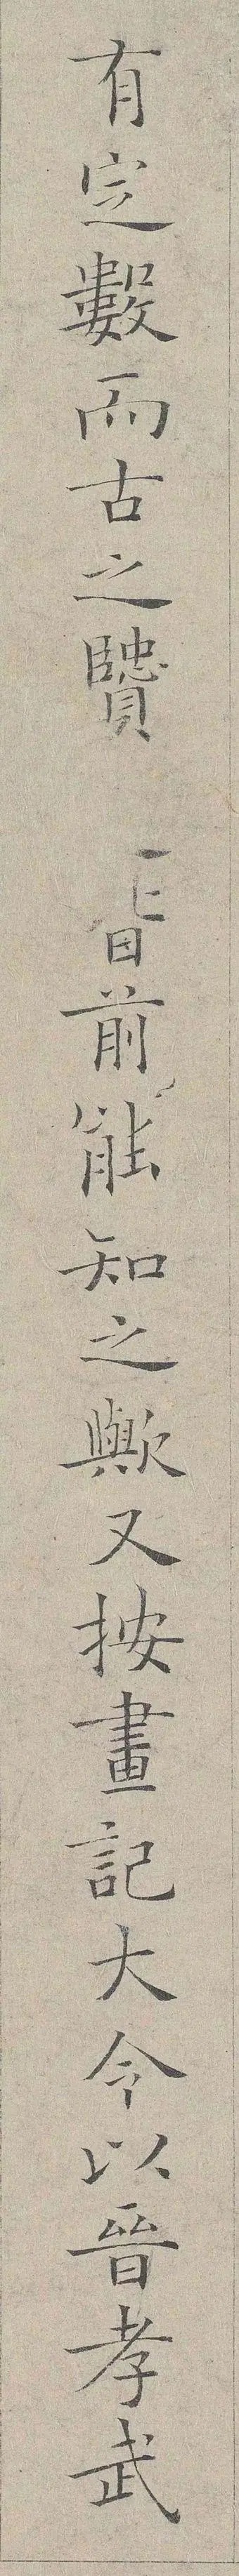 有定數而古之賢昔前能知之歟又按畫記大令以晉孝武